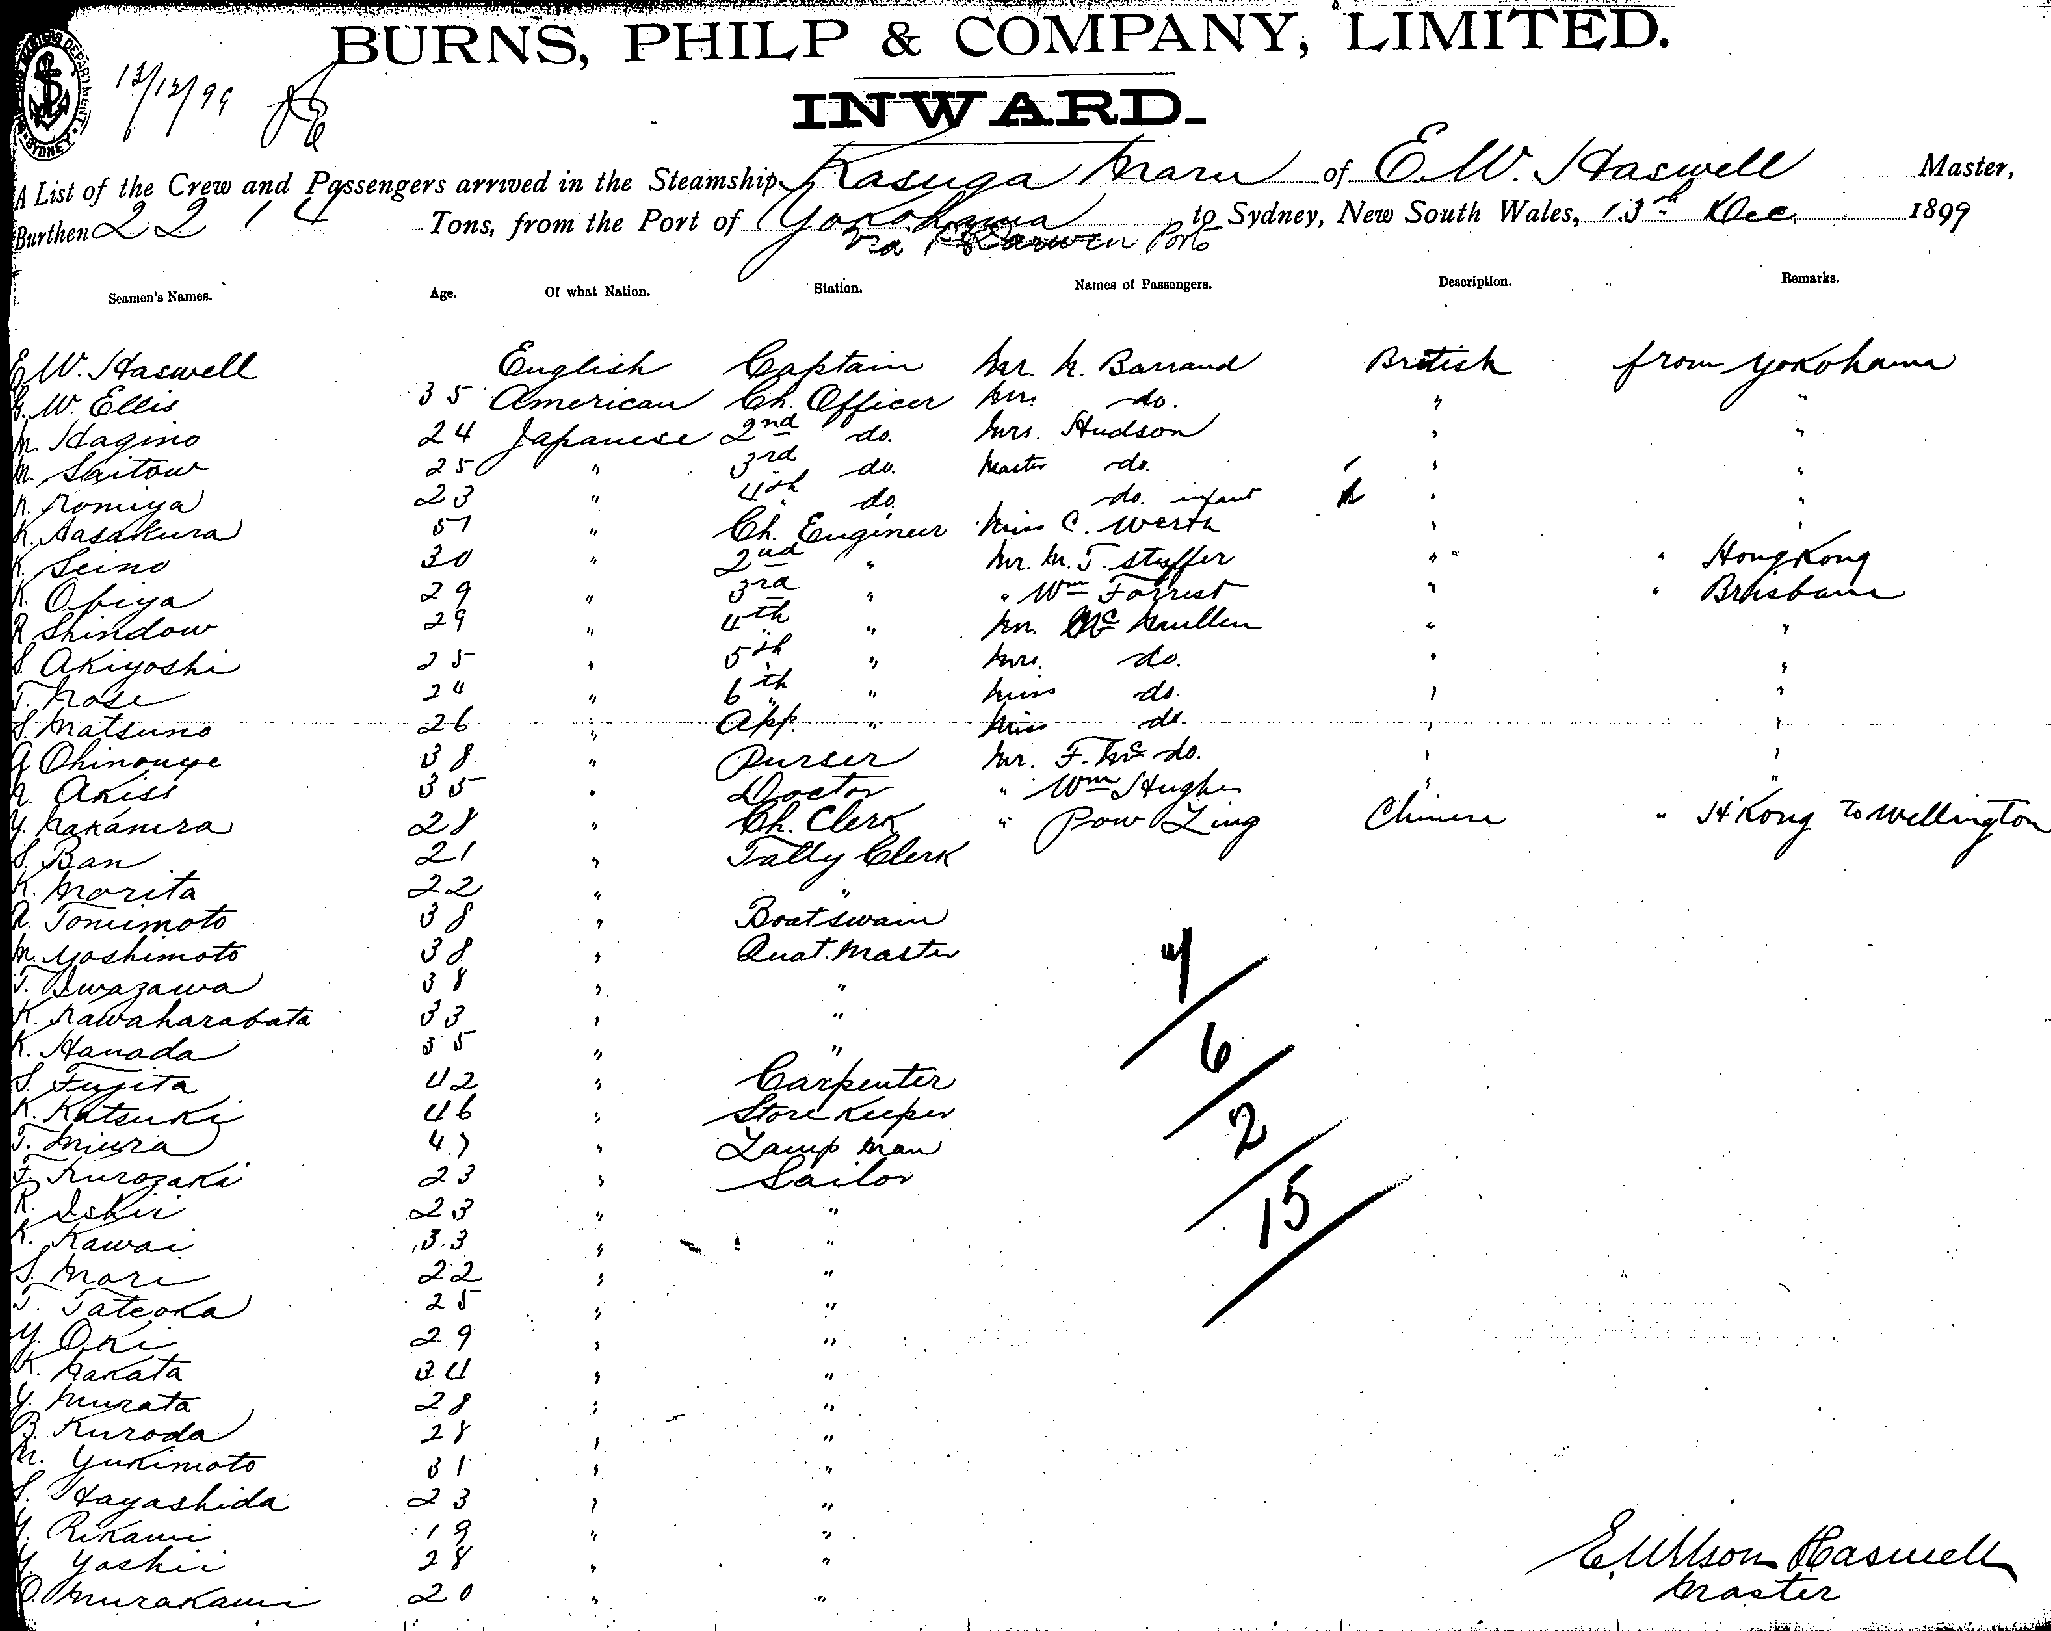 BURNS, PHILP & COMPANY, LIMITED.
13/12/99
INWARD.
A List of the Crew and Passengers arrived in the Steamship Kasuga Maru of E. W. Haswell Master,
Burthen 2214 Tons, from the Port of Yokohama to Sydney, New South Wales, 13th Dec. 1899
via Port
Seamen's Names. Age. Of what Nation. Station. Names of Passengers. Description. Remarks.
E. W. Haswell English Captain Mr. N. Barrand British from Yokohama
G. W. Ellis 35 American Ch. Officer Mrs. do. " "
M. Hagino 24 Japanese 2nd do. Mrs. Hudson " "
M. Saitow 25 " 3rd do. Master do. " "
K. Komiya 23 " 4th do. do. infant " "
K. Aasakura 51 " Ch. Engineer Miss C. Werth " "
K. Seino 30 " 2nd " Mr. M. J. Stuffer " " HongKong
K. Obiya 29 " 3rd " " Wm Forrest " " Brisbane
R. Shindow 29 " 4th " Mr. McMullen " "
S. Akiyoshi 25 " 5th " Mrs. do. " "
T. Nose 24 " 6th " Miss do. " "
S. Matsuno 26 " App. " Miss do. " "
Ohinouye 38 " Purser Mr. F. Mc do. " "
Akisi 35 " Doctor " Wm Hughes " "
Y. Nakamra 28 " Ch. Clerk " Pow Ling Chinese " H'Kong to Wellington
S. Ban 21 " Tally Clerk
K. Morita 22 " "
Tomimoto 38 " Boatswain
M. Yoshimoto 38 " Quat. Master
T. Iwazawa 38 " "
K. Kawaharabata 33 " "
K. Hanada 35 " "
S. Fujita 42 " Carpenter
K. Katsuki 46 " Store Keeper
T. Miura 47 " Lamp man
Kurozaki 23 " Sailor
K. Ishii 23 " "
K. Kawai 33 " "
S. Mori 22 " "
T. Tateoka 25 " "
Y. Oki 29 " "
K. Nakata 34 " "
Y. Murata 28 " "
B. Kuroda 28 " "
M. Yukimoto 31 " "
S. Hayashida 23 " "
Y. Rikami 19 " "
Y. Yoshii 28 " "
O. Murakami 20 " "
4/6/2/15
E. Wilson Haswell
Master